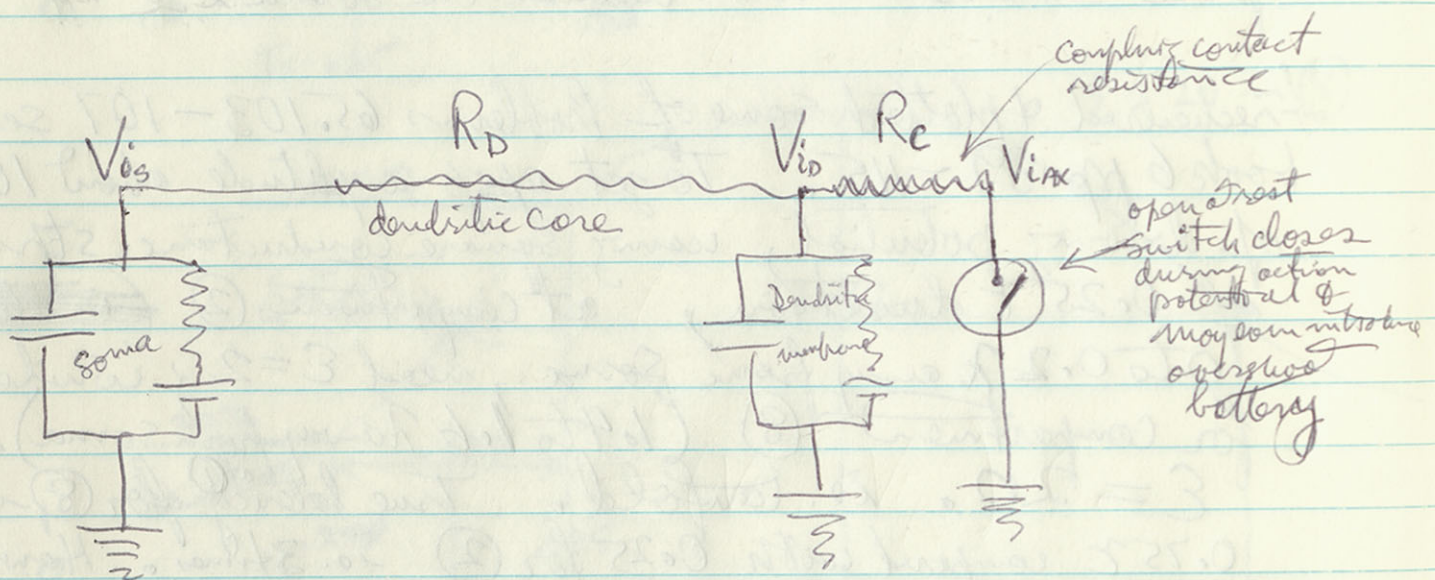 coupling contact
resistance
R_D
R_C
V_iS
V_iD
V_iAX
dendritic core
open at rest
switch closes
during action
potential &
may even introduce
overshoot
battery
Soma
Dendritic
membrane